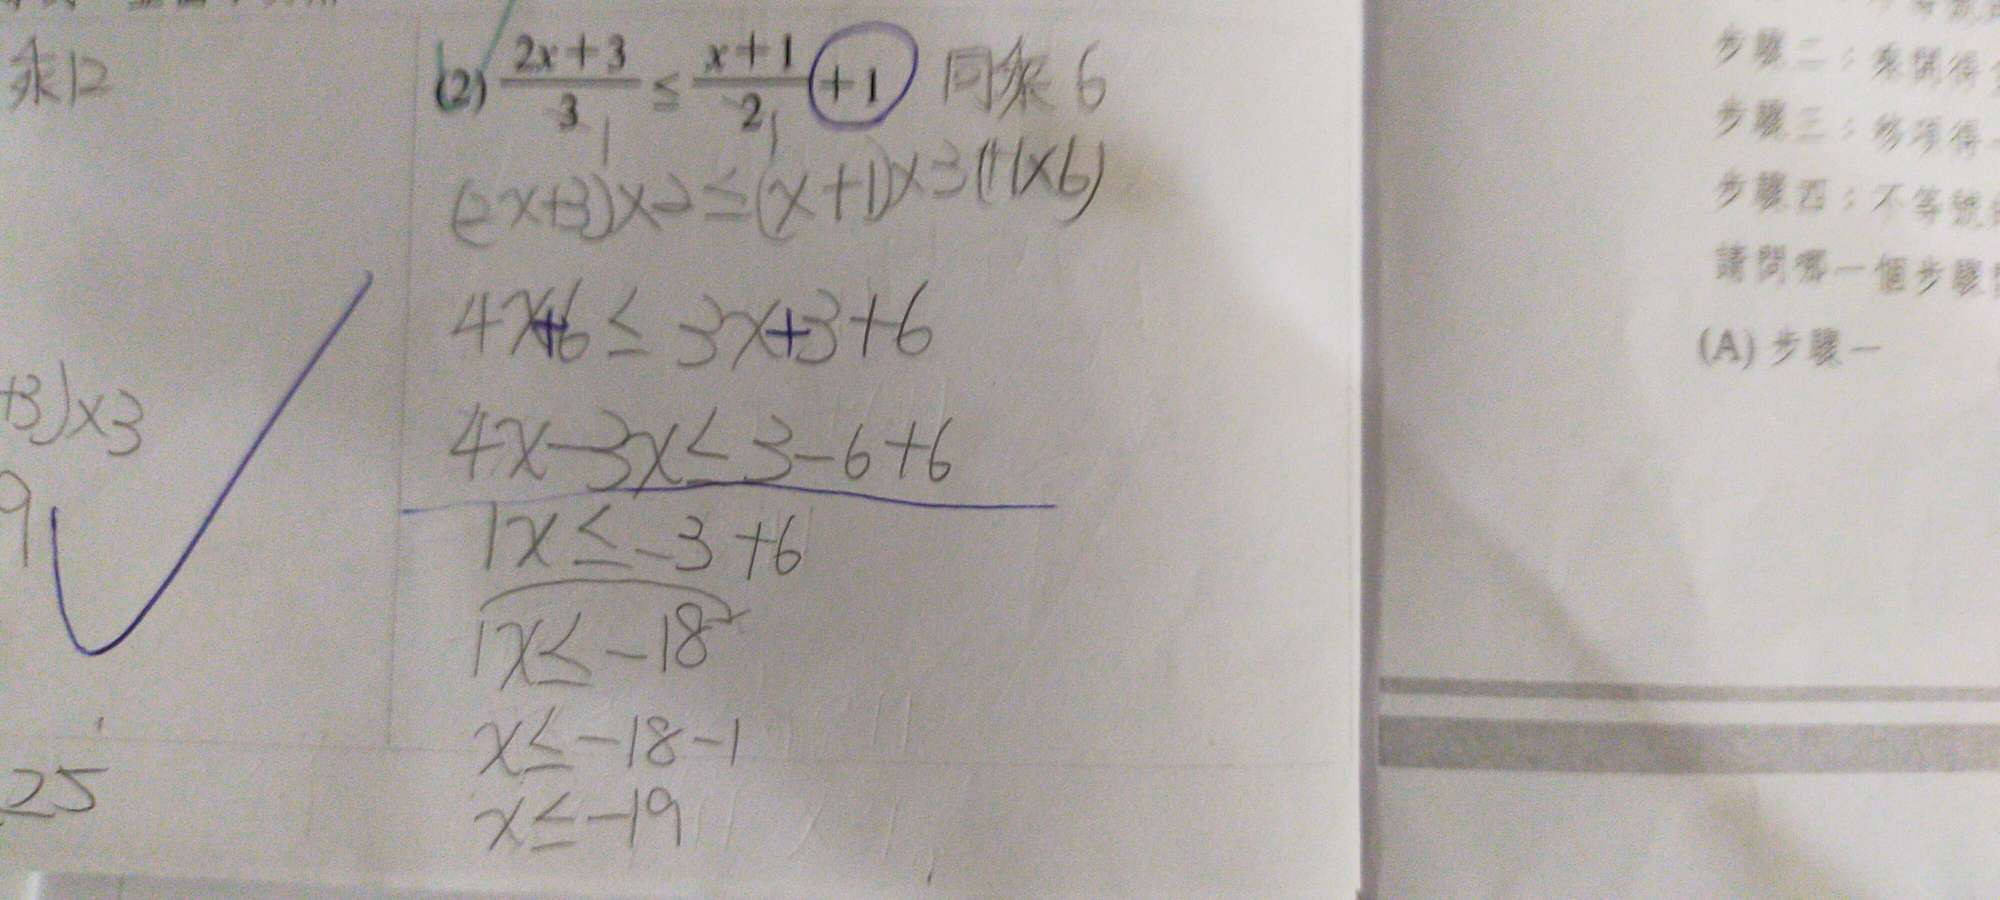 乘12
+3)×3
9
25
(2) (2x+3)/3 ≤ (x+1)/2 +1 同乘 6
(2x+3)×2≤(x+1)×3(+1×6)
4x+6≤3x+3+6
4x-3x≤3-6+6
1x≤-3+6
1x≤-18
x≤-18-1
x≤-19
步驟二：乘開得
步驟三：移項得
步驟四：不等號
請問哪一個步驟
(A) 步驟一